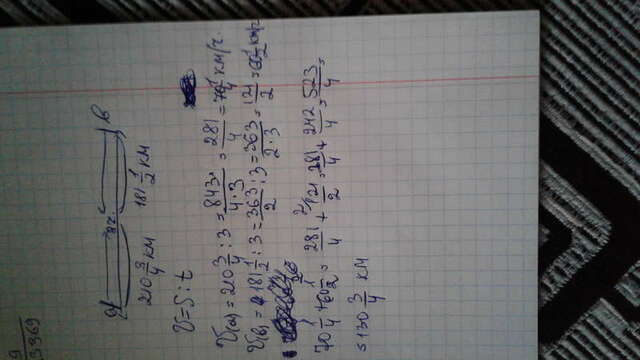 9
3369
a 3ч. b
210 3/4 км 181 1/2 км
V=S:t
V(a)=210 3/4 : 3 = 843/4·3 = 281/4 = 70 1/4 км/ч.
V(b)=181 1/2 : 3 = 363/2 : 3 = 363/2·3 = 121/2 = 60 1/2 км/ч
70 1/4 + 60 1/2 = 281/4 + 121/2 = 281/4 + 242/4 = 523/4 =
= 130 3/4 км